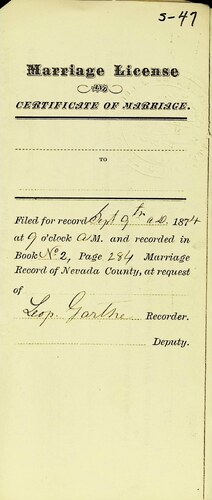 S-47
Marriage License
AND
CERTIFICATE OF MARRIAGE.
TO
Filed for record Sept 9th A.D. 1874
at 9 o'clock A M. and recorded in
Book No 2, Page 284 Marriage
Record of Nevada County, at request
of
Leop. Garthe Recorder.
Deputy.